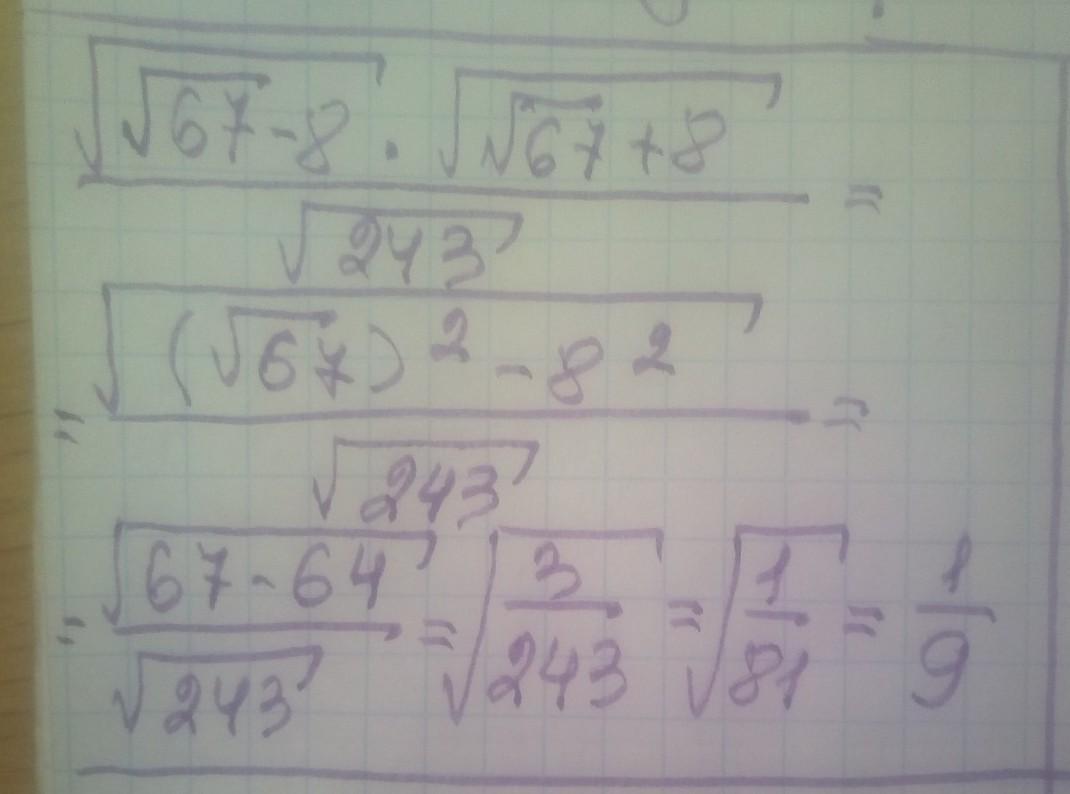 √(√67 - 8) · √(√67 + 8) / √243 =
= √((√67)² - 8²) / √243 =
= √(67 - 64) / √243 = √(3/243) = √(1/81) = 1/9